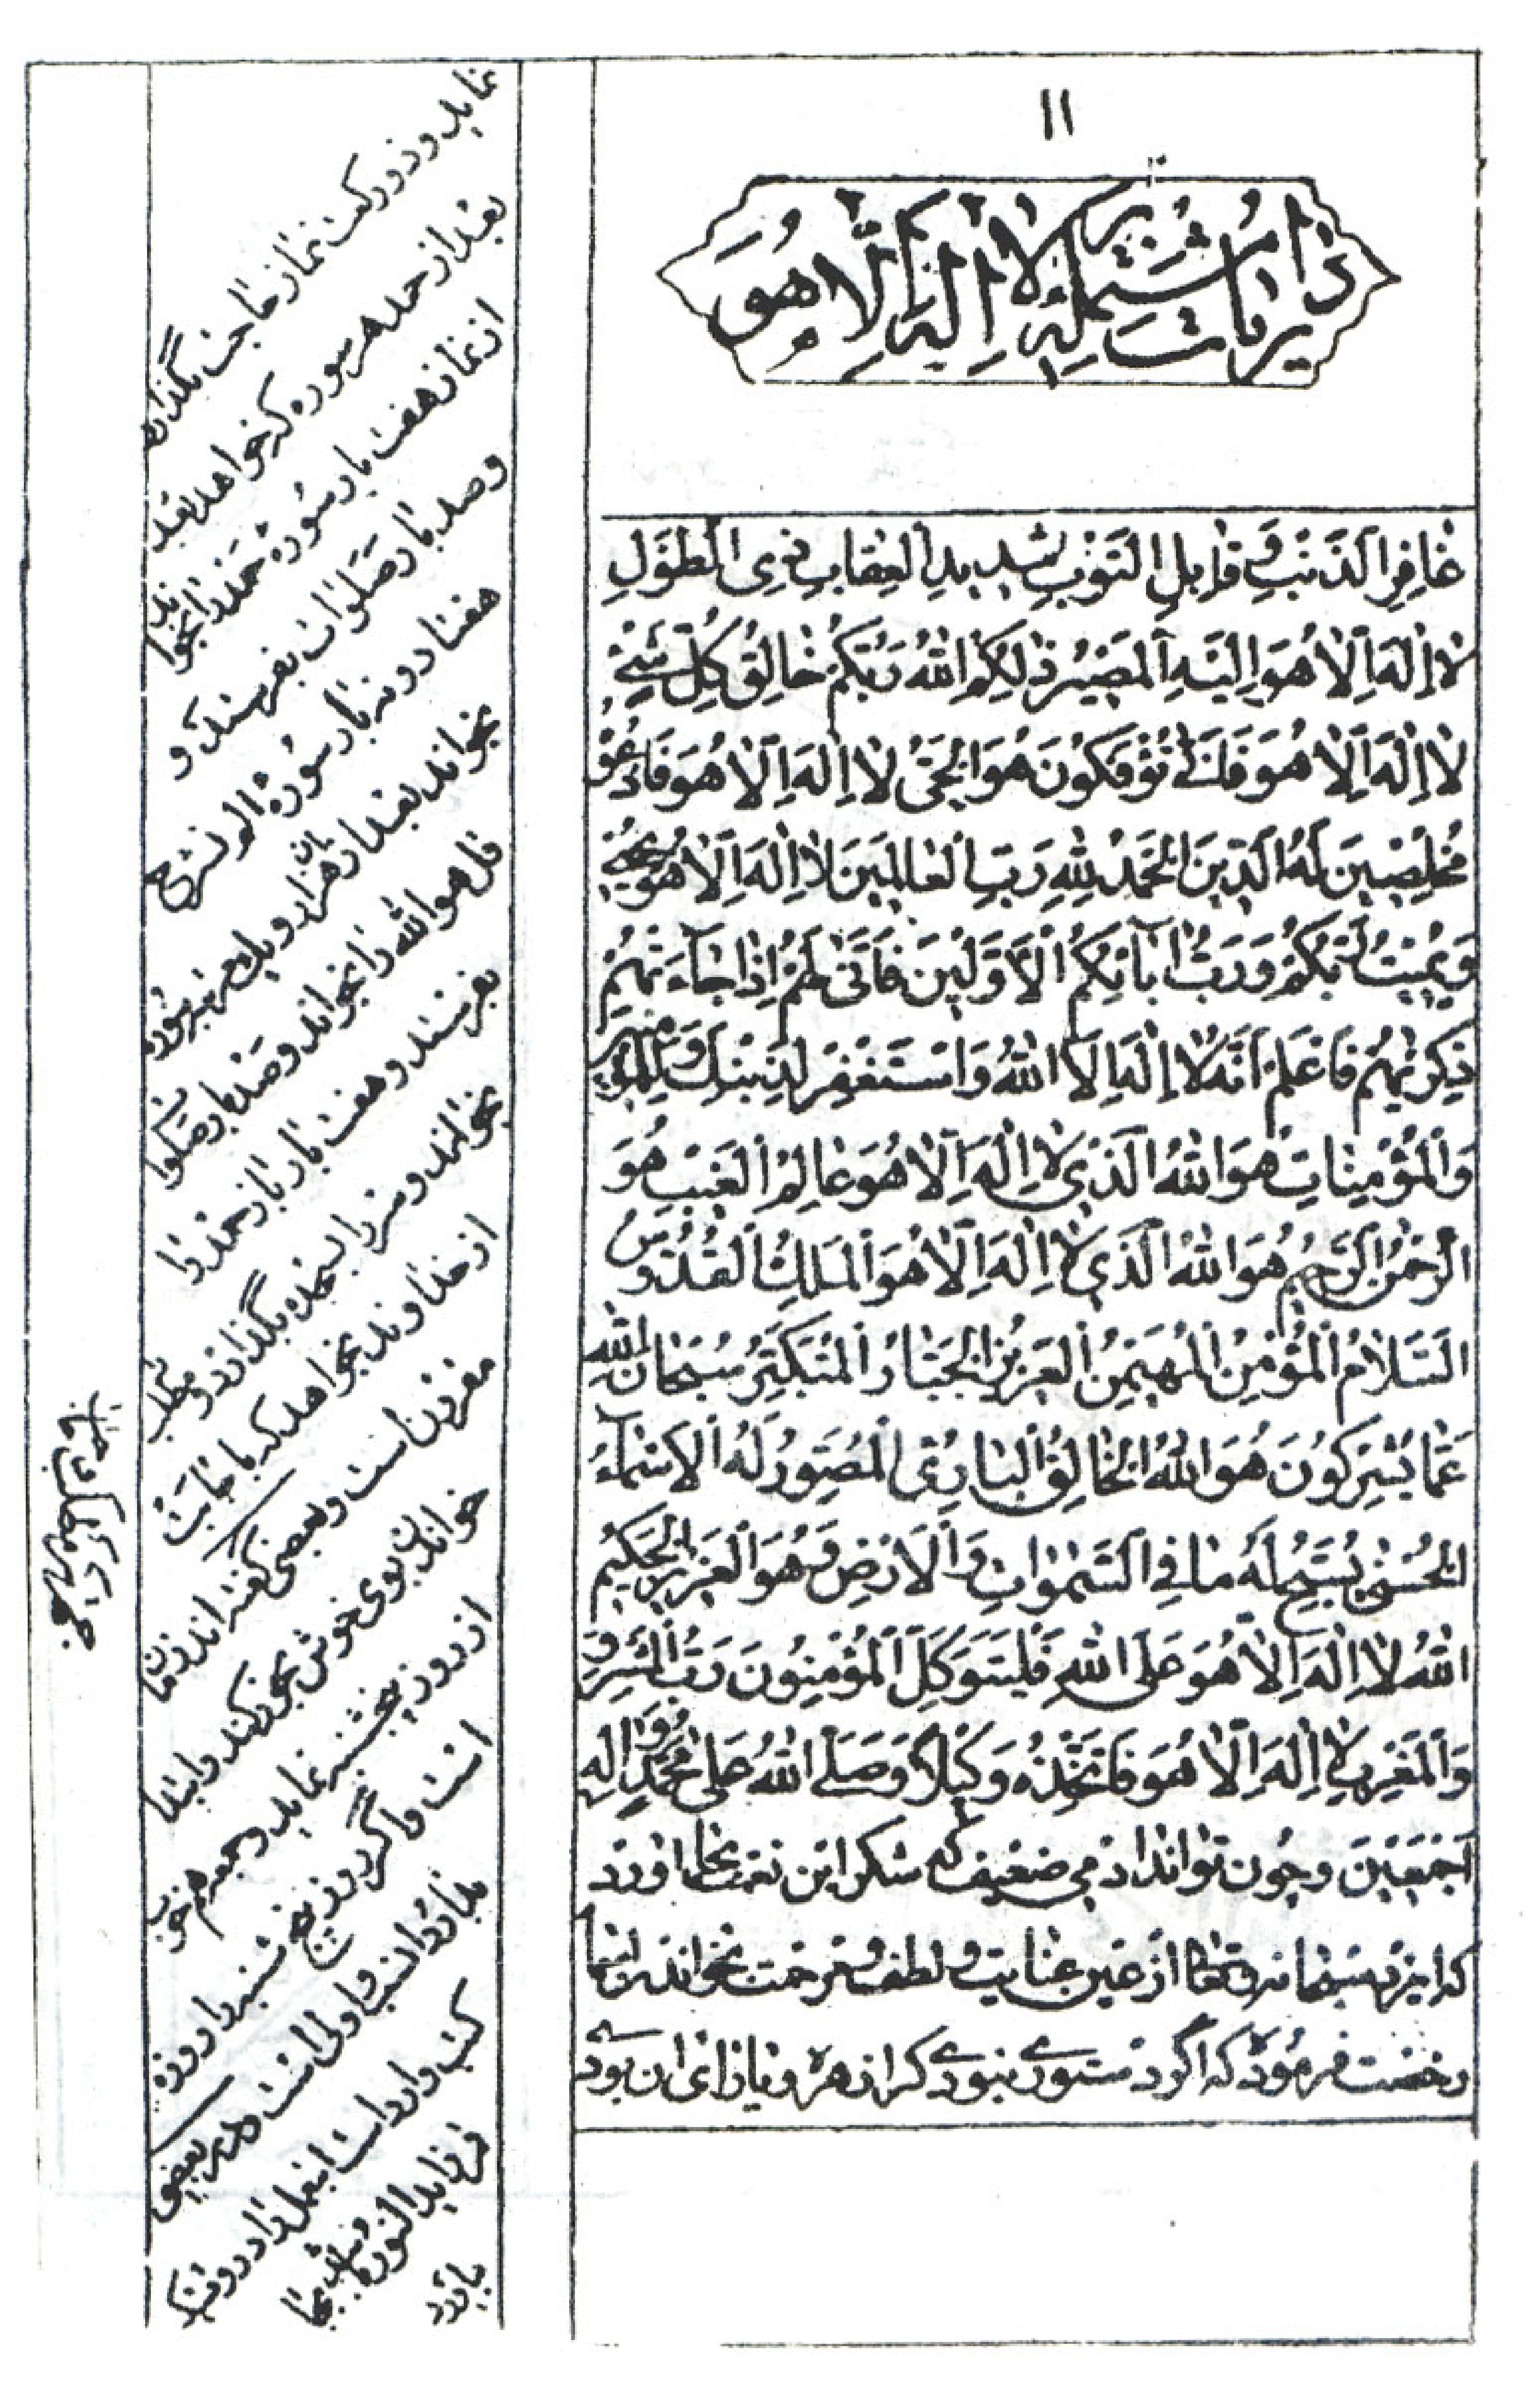 ۱۱
در ایات مشتمله بر لا اله الا هو
غٰافِرِ الذَّنْبِ وَ قٰابِلِ التَّوْبِ شَدیدِ الْعِقابِ ذِی الطَّوْلِ
لا اِلٰهَ اِلّٰا هُوَ اِلَیْهِ الْمَصیرُ ذٰلِکُمُ اللهُ رَبُّکُمْ خٰالِقُ کُلِّ شَیْءٍ
لا اِلٰهَ اِلّٰا هُوَ فَاَنّٰی تُؤْفَکُونَ هُوَ الْحَیُّ لا اِلٰهَ اِلّٰا هُوَ فَادْعُوهُ
مُخْلِصینَ لَهُ الدّینَ الْحَمْدُ لِلّٰهِ رَبِّ الْعالَمینَ لا اِلٰهَ اِلّٰا هُوَ یُحْیی
وَ یُمیتُ رَبُّکُمْ وَ رَبُّ اٰبٰائِکُمُ الْاَوَّلینَ فَاَنّٰی لَهُمْ اِذا جٰاءَتْهُمْ
ذِکْریٰهُمْ فَاعْلَمْ اَنَّهُ لا اِلٰهَ اِلَّا اللهُ وَ اسْتَغْفِرْ لِذَنْبِکَ وَ لِلْمُؤْمِنینَ
وَ الْمُؤْمِنٰاتِ هُوَ اللهُ الَّذی لا اِلٰهَ اِلّٰا هُوَ عٰالِمُ الْغَیْبِ هُوَ
الرَّحْمٰنُ الرَّحیمُ هُوَ اللهُ الَّذی لا اِلٰهَ اِلّٰا هُوَ الْمَلِکُ الْقُدُّوسُ
السَّلٰامُ الْمُؤْمِنُ الْمُهَیْمِنُ الْعَزیزُ الْجَبّٰارُ الْمُتَکَبِّرُ سُبْحٰانَ اللهِ
عَمّٰا یُشْرِکُونَ هُوَ اللهُ الْخٰالِقُ الْبٰارِئُ الْمُصَوِّرُ لَهُ الْاَسْمٰاءُ
الْحُسْنیٰ یُسَبِّحُ لَهُ مٰا فِی السَّمٰوٰاتِ وَ الْاَرْضِ وَ هُوَ الْعَزیزُ الْحَکیمُ
اللهُ لا اِلٰهَ اِلّٰا هُوَ عَلَی اللهِ فَلْیَتَوَکَّلِ الْمُؤْمِنُونَ رَبُّ الْمَشْرِقِ
وَ الْمَغْرِبِ لا اِلٰهَ اِلّٰا هُوَ فَاتَّخِذْهُ وَکیلًا وَ صَلَّی اللهُ عَلیٰ مُحَمَّدٍ وَ اٰلِهِ
اَجْمَعینَ و چون تواند ادمی ضعیف که شکر این نعمت بجا اورد
که ایزد سبحانه و تعالی از عین عنایت و لطف و مرحمت بخواندن
رخصت فرمود که اگر دستوری نبودی کرا زهره و یارای ان بودی
نماید و دو رکعت نماز حاجت بگذارد
بعد از حمد هر سوره که خواهد بعد
از نماز هفت بار سوره حمد را بخواند
و صد بار صلوات بفرستد و
هفتاد و نه بار سوره الم نشرح
بخواند بعد از ان هزار و یک مرتبه سوره
قل هو الله را بخواند و صد بار صلوات
بفرستد و هفت بار باز حمد را
بخواند و سر را بسجده بگذارد و مطلب
از خداوند بخواهد که باجابت
مقرون است و بعضی گفته اند در زمان
خواندن بوی خوش بخور کند و ابتدا
از روز پنجشنبه نماید و جمعه هم خوب
است و اگر روز پنجشنبه را روزه
بدارد انسب و اولی است و در بعضی
کتب وارد است